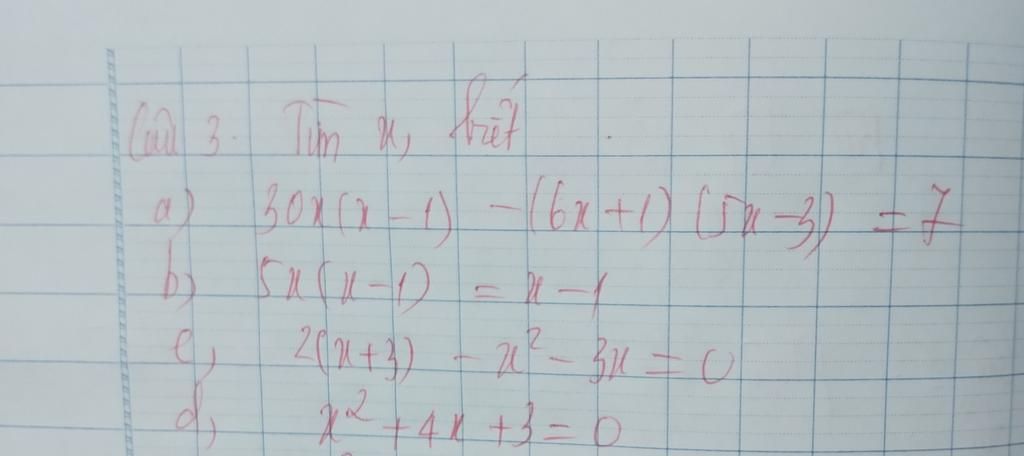 Câu 3. Tìm x, biết
a) 30x(x-1) -(6x+1)(5x-3) = 7
b) 5x(x-1) = x-1
c, 2(x+3) - x² - 3x = 0
d, x² + 4x + 3 = 0